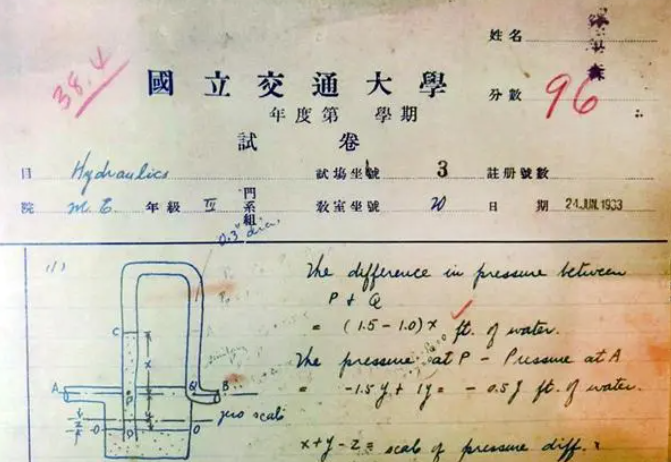 姓名
38.4
國立交通大學
分數 96
年度第 學期
試卷
目 Hydraulics 試場坐號 3 註册號數
院 M.E. 年級 IV 門系組 教室坐號 20 日期 24 JUN 1933
0.3" dia.
(1)
The difference in pressure between
P & Q
= (1.5-1.0)x ft. of water.
The pressure at P - Pressure at A
= -1.5y + 1y = -0.5y ft. of water.
x+y-z = scale of pressure diff.
C
x
A
P
Q
B
y
z
O
O
D
zero scale